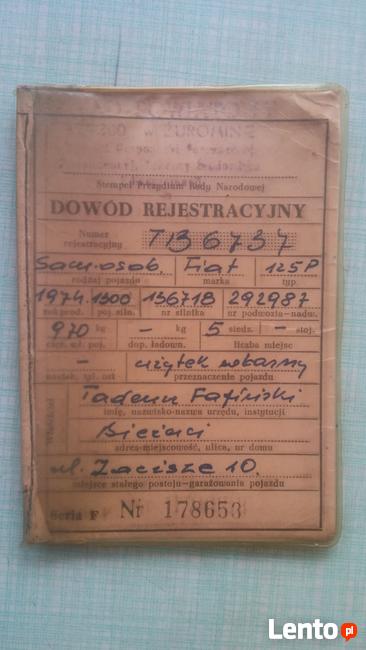 w ŻUROMINIE
Stempel Prezydium Rady Narodowej
DOWÓD REJESTRACYJNY
Numer rejestracyjny TB6737
Sam. osob. Fiat 125P
rodzaj pojazdu marka typ
1974 1300 136718 292987
rok prod. poj. siln. nr silnika nr podwozia-nadw.
970 kg - kg 5 siedz. - stoj.
dop. ładown. liczba miejsc
- użytek własny
przeznaczenie pojazdu
Tadeusz
imię, nazwisko-nazwa urzędu, instytucji
adres-miejscowość, ulica, nr domu
ul. Zacisze 10.
miejsce stałego postoju-garażowania pojazdu
Seria F Nr 178653
Lento.pl